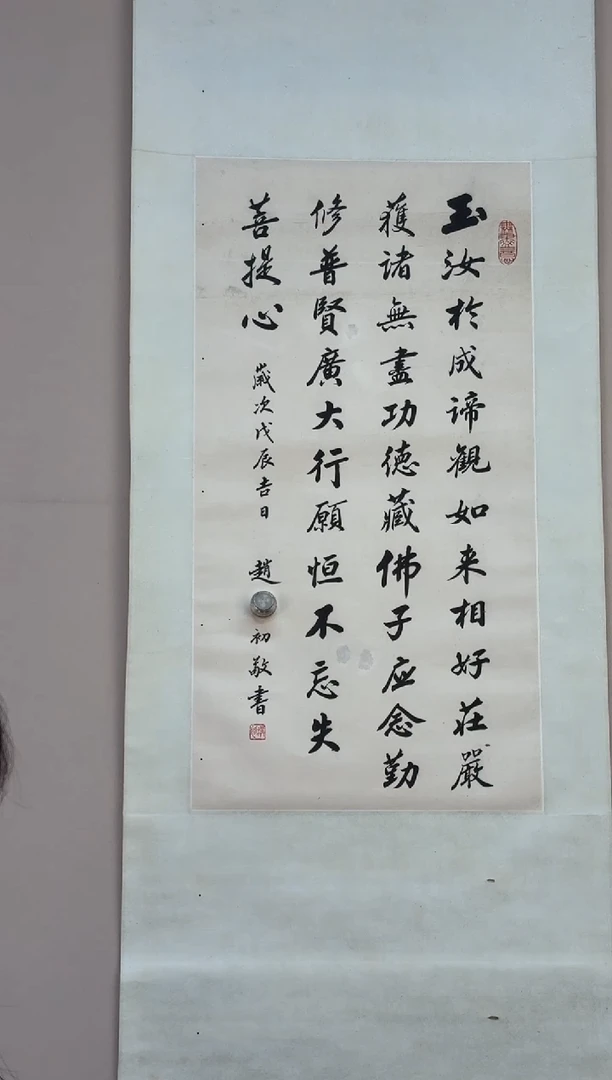 玉汝於成諦觀如来相好莊嚴
獲諸無盡功德藏佛子应念勤
修普賢廣大行願恒不忘失
菩提心
歲次戊辰吉日
趙 初敬書